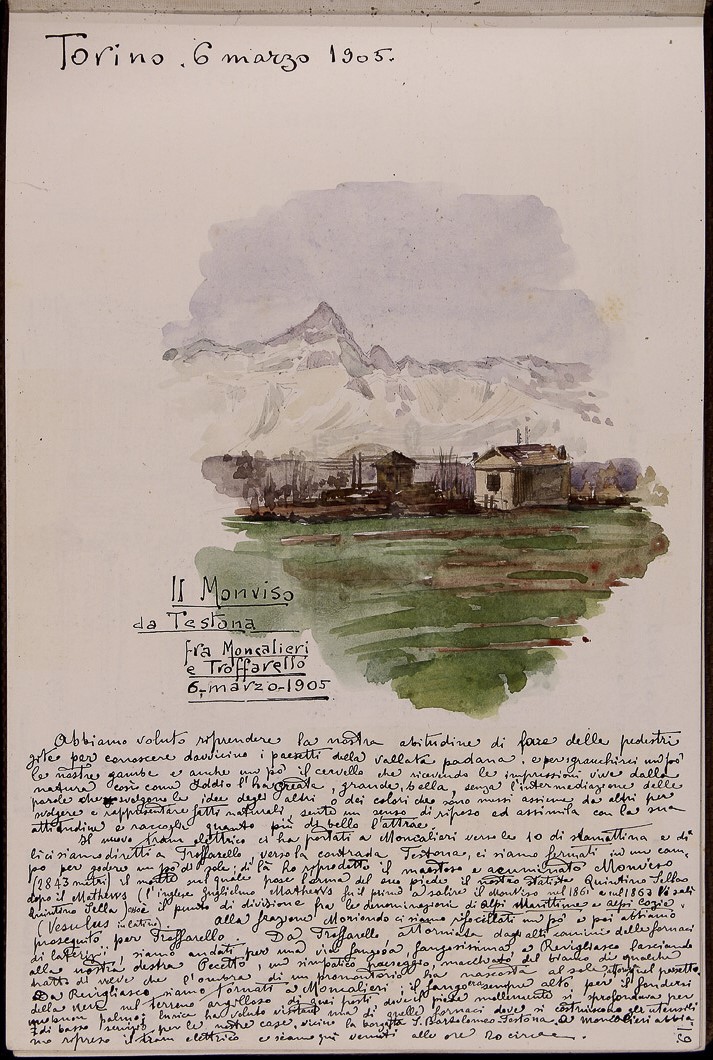 Torino . 6 marzo 1905.
Il Monviso
da Testona
fra Moncalieri
e Troffarello
6-marzo-1905
Abbiamo voluto riprendere la nostra abitudine di fare delle pedestri
gite per conoscere davvicino i paesetti della vallata padana. e per sgranchirci un po'
le nostre gambe e anche un po' il cervello che ricevendo le impressioni vive dalla
natura così come Iddio l'ha creata, grande, bella, senza l'intermediazione delle
parole che svolgono le idee degli altri o dei colori che sono messi assieme da altri per
svolgere e rappresentare fatti naturali, sente un senso di riposo ed assimila con la sua
attitudine e raccoglie quanto più di bello l'attrae.
Il nuovo tram elettrico ci ha portati a Moncalieri verso le 10 di stamattina e di
lì ci siamo diretti a Troffarello, verso la contrada Testona, ci siamo fermati in un cam-
po per godere un po' di sole, di là ho riprodotto il maestoso e acuminato Monviso
(2843 metri) il monte sul quale pose l'orma del suo piede il nostro statista Quintino Sella
dopo il Mathews (l'inglese Guglielmo Mathews fu il primo a salire il Monviso nel 1861 e nel 1863 vi salì
Quintino Sella) cioè il punto di divisione fra le denominazioni di alpi Marittime e alpi cozie.
(Vesulus in latino). alla frazione Moriondo ci siamo rifocillati un po' e poi abbiamo
proseguito per Troffarello. Da Troffarello attorniata dagli alti camini delle fornaci
di laterizi, siamo andati per una via fangosa, fangosissima, a Revigliasco lasciando
alla nostra destra Pecetto, un simpatico paeseggio, macchiato del bianco di qualche
tratto di neve che l'ombra di un promontorio ha nascosta al sole
Da Revigliasco siamo tornati a Moncalieri; il fango sempre alto, per il fondersi
della neve nel terreno argilloso di quei posti dove il piede mollemente si sprofondava per
un buon palmo; Enrica ha voluto visitare una di quelle fornaci dove si costruiscono gli utensili
di basso servizio per le nostre case, vicino la borgata S. Bartolomeo Testona. A Moncalieri abbia-
mo ripreso il tram elettrico e siamo qui venuti alle ore 20 circa.